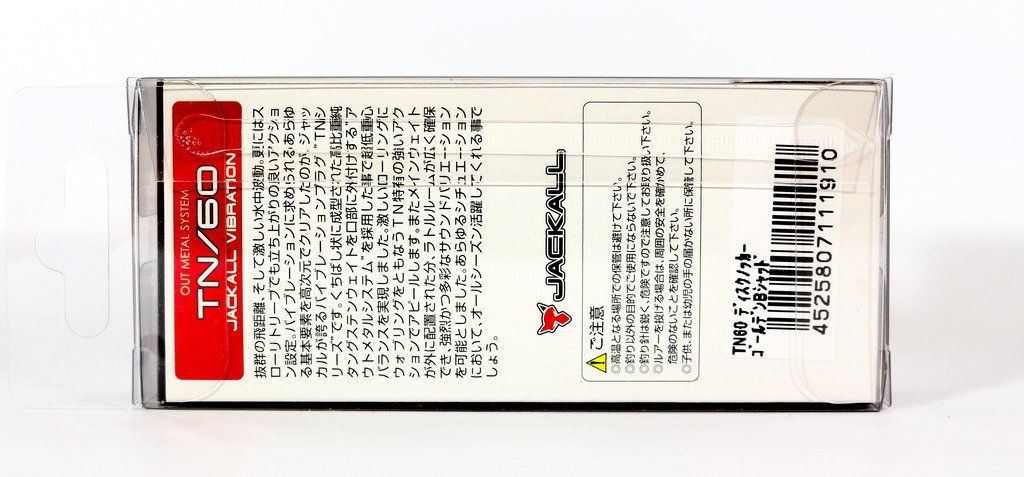 OUT METAL SYSTEM
TN/60
JACKALL VIBRATION
抜群の飛距離、そして激しい水中波動。更にはス
ローリトリーブでも立ち上がりの良いアクショ
ン設定とバイブレーションに求められる、あらゆ
る基本要素を高次元でクリアしたのが、ジャッ
カルが誇るバイブレーションプラグ、"TNシ
リーズ"です。くちばし状に成型された高比重純
タングステンウェイトを口部に外付けする"ア
ウトメタルシステム"を採用した事で超低重心
バランスを実現しました。激しいローリングに
ウォブリングをともなうTN特有の強いアク
ションでアピールします。またメインウェイト
が外に配置された分、ラトルルームが広く確保
でき、強烈かつ多彩なサウンドバリエーション
を可能としました。あらゆるシチュエーション
において、オールシーズン活躍してくれる事で
しょう。
JACKALL
ご注意
◎高温となる場所での保管は避けて下さい。
◎釣り以外の目的でご使用にならないで下さい。
◎釣り針は鋭く、危険ですので注意してお取り扱い下さい。
◎ルアーを投げる場合は、周囲の安全を確かめて、
危険のないことを確認して下さい。
◎子供、または幼児の手の届かない所に保管して下さい。
TN60 ディスクノッカー
ゴールデンBシャット
4525807111910